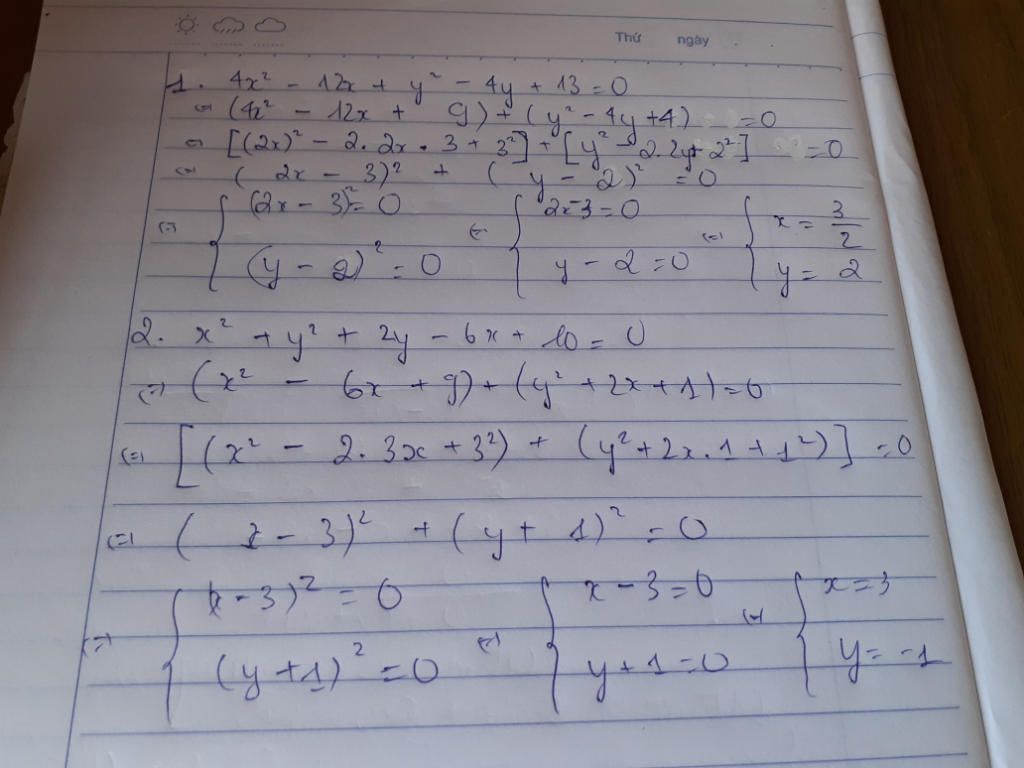 Thứ ngày
1. 4x² - 12x + y² - 4y + 13 = 0
⇔ (4x² - 12x + 9) + (y² - 4y + 4) = 0
⇔ [(2x)² - 2. 2x . 3 + 3²] + [y² - 2. 2y + 2²] = 0
⇔ ( 2x - 3)² + ( y - 2)² = 0
⇔ { (2x - 3)² = 0 ⇔ { 2x - 3 = 0 ⇔ { x = 3/2
(y - 2)² = 0 y - 2 = 0 y = 2
2. x² + y² + 2y - 6x + 10 = 0
⇔ (x² - 6x + 9) + (y² + 2x + 1) = 0
⇔ [(x² - 2. 3x + 3²) + (y² + 2x . 1 + 1²)] = 0
⇔ ( x - 3)² + (y + 1)² = 0
⇔ { (x - 3)² = 0 ⇔ { x - 3 = 0 ⇔ { x = 3
(y + 1)² = 0 y + 1 = 0 y = -1